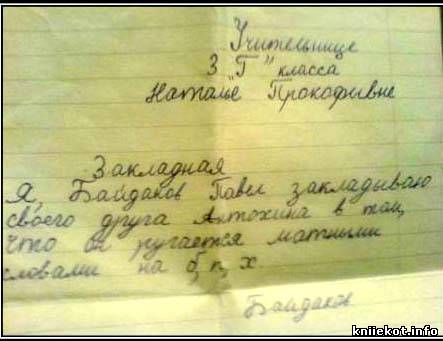 Учительнице
3 "Г" класса
Наталье Прокофивне
Закладная
Я, Байдаков Павел закладываю
своего друга Антохина в том,
что он ругается матными
словами на б, п, х.
Байдаков
kniiekot.info